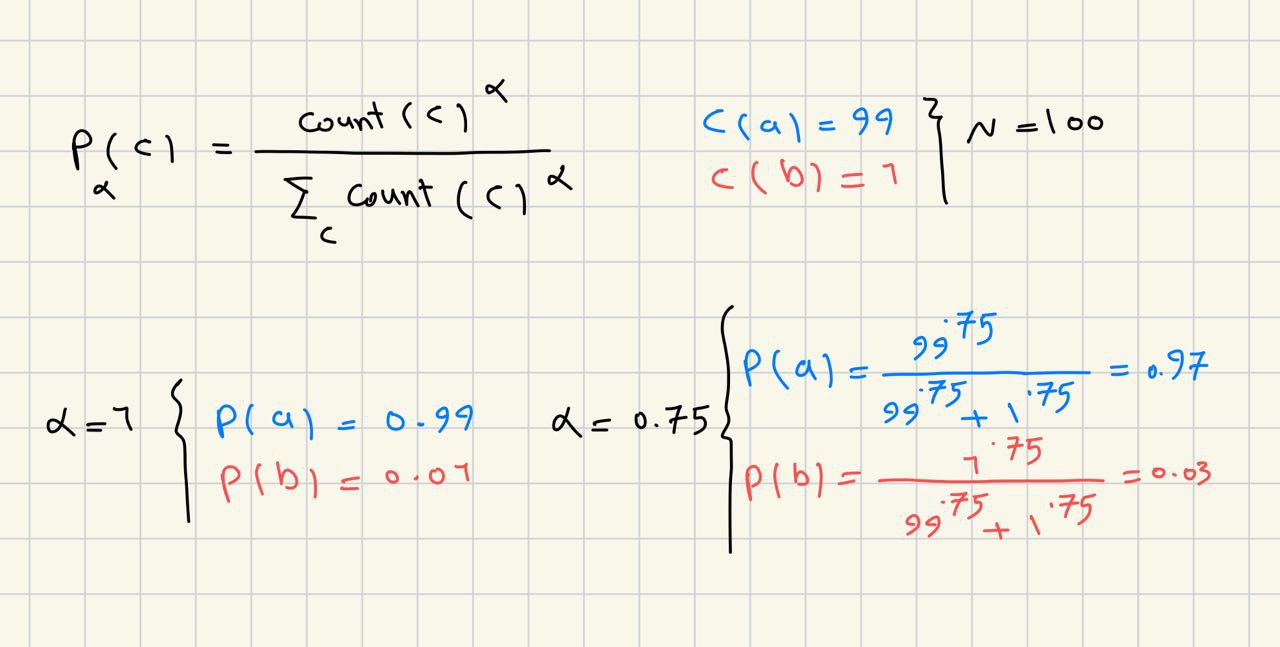 P_α(c) = count(c)^α / Σ_c count(c)^α
C(a) = 99
C(b) = 1
} N = 100
α = 1 { P(a) = 0.99
P(b) = 0.01
α = 0.75 { P(a) = 99^.75 / (99^.75 + 1^.75) = 0.97
P(b) = 1^.75 / (99^.75 + 1^.75) = 0.03